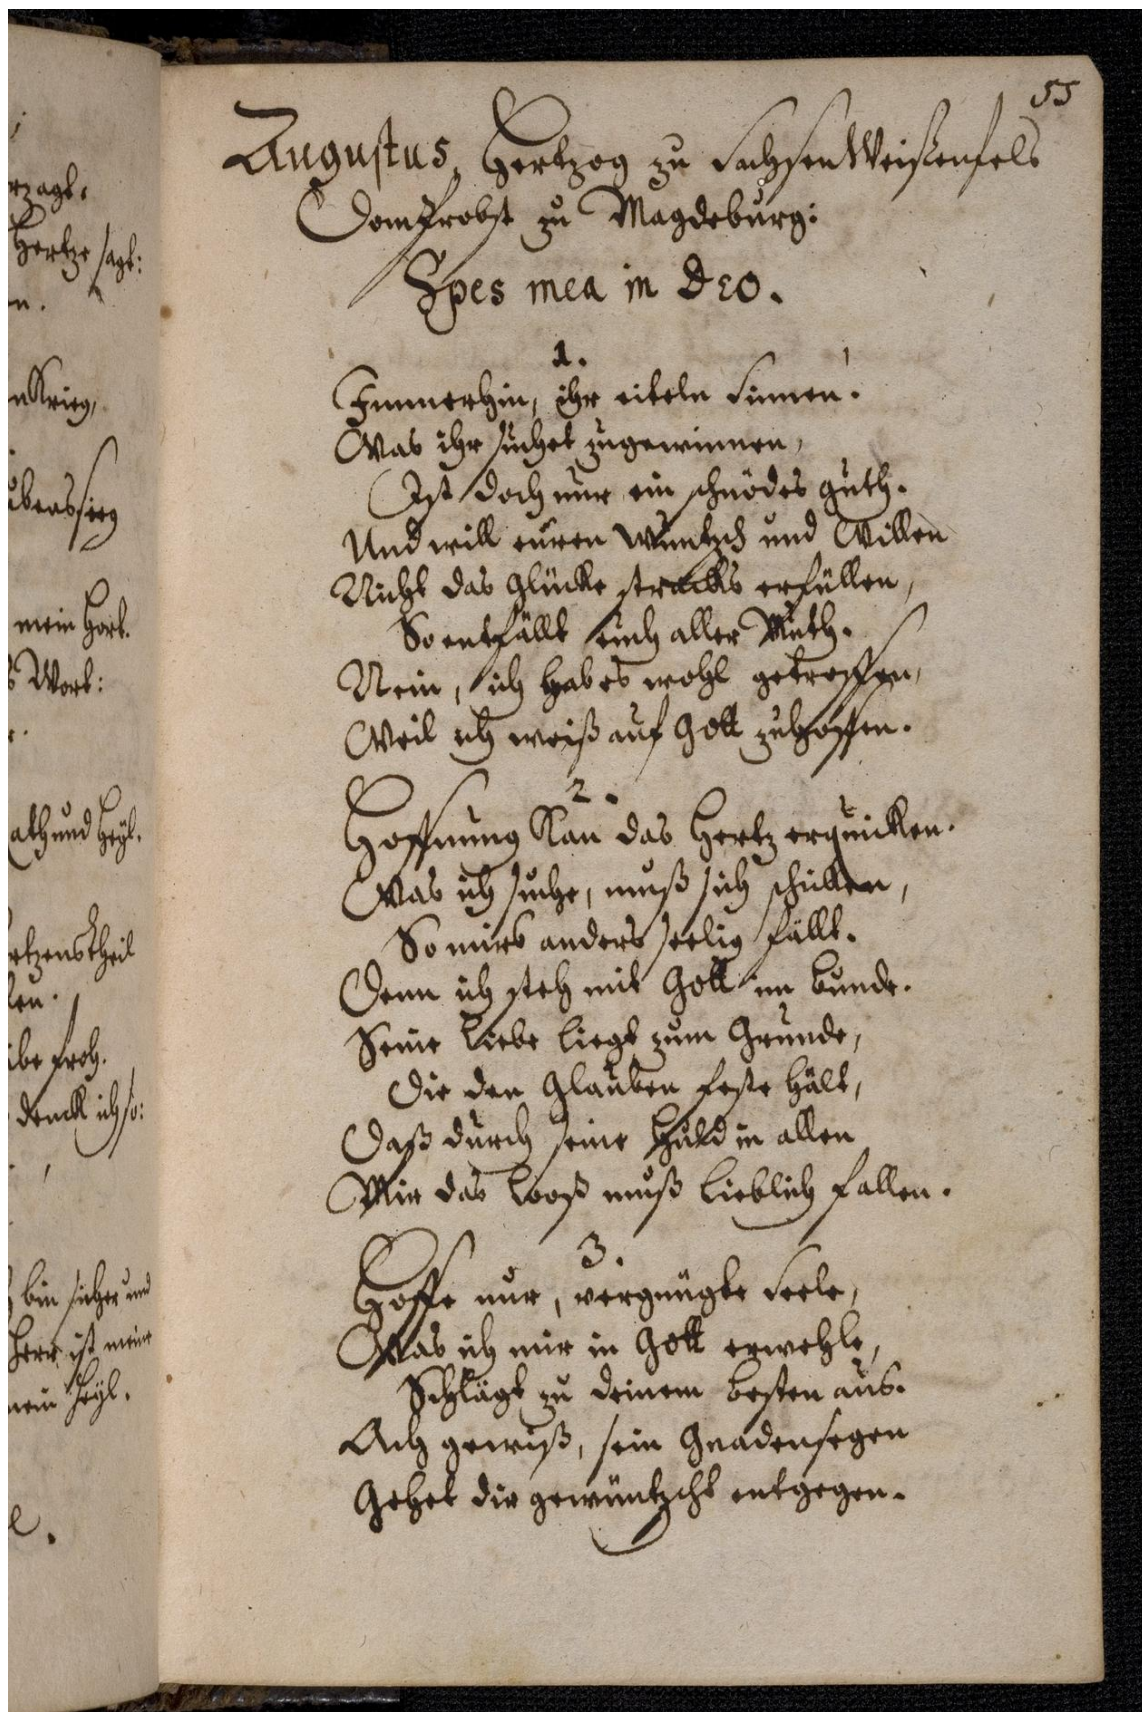 rzagt.
Hertze sagt:
n.
n Krieg,
mein Hort.
Wort:
ath und Heyl.
rtzens theil
len.
be froh.
denck ich so:
bin sicher und
Herr ist meine
mein Heyl.
55
Augustus, Hertzog zu Sachsen Weißenfels
DomProbst zu Magdeburg:
Spes mea in Deo.
1.
Immerhin, ihr eiteln Sinnen!
Was ihr suchet zugewinnen,
Ist doch nur ein schnödes guth.
Und will euren Wuntzsch und Willen
Nicht das Glücke stracks erfüllen,
So entfällt euch aller Muth.
Nein, ich hab es wohl getroffen,
Weil ich weiß auf Gott zuhoffen.
2.
Hoffnung Kan das Hertz erquicken.
Was ich suche, muß sich
So mirs anders seelig fällt.
Denn ich steh mit Gott im bunde.
Seine Liebe liegt zum Grunde,
Die den Glauben feste hält,
Daß durch seine Huld in allen
Mir das Looß muß lieblich fallen.
3.
Hoffe nur, vergnügte Seele,
Was ich mir in Gott erwehle,
Schlägt zu deinem besten aus.
Ach gewiß, sein Gnadensegen
Gehet dir gewüntzscht entgegen.